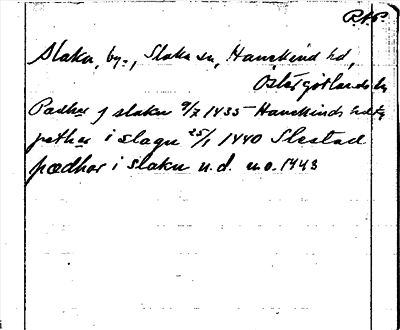 R.A.P.
Slaka, by., Slaka sn, Hanekind hd,
Östergötlands ln
Pædher j slaku 9/7 1435 Hanekinds hd
pether i slagu 25/1 1440 Slestad
pædhar i slaku u.d. u.o. 1443